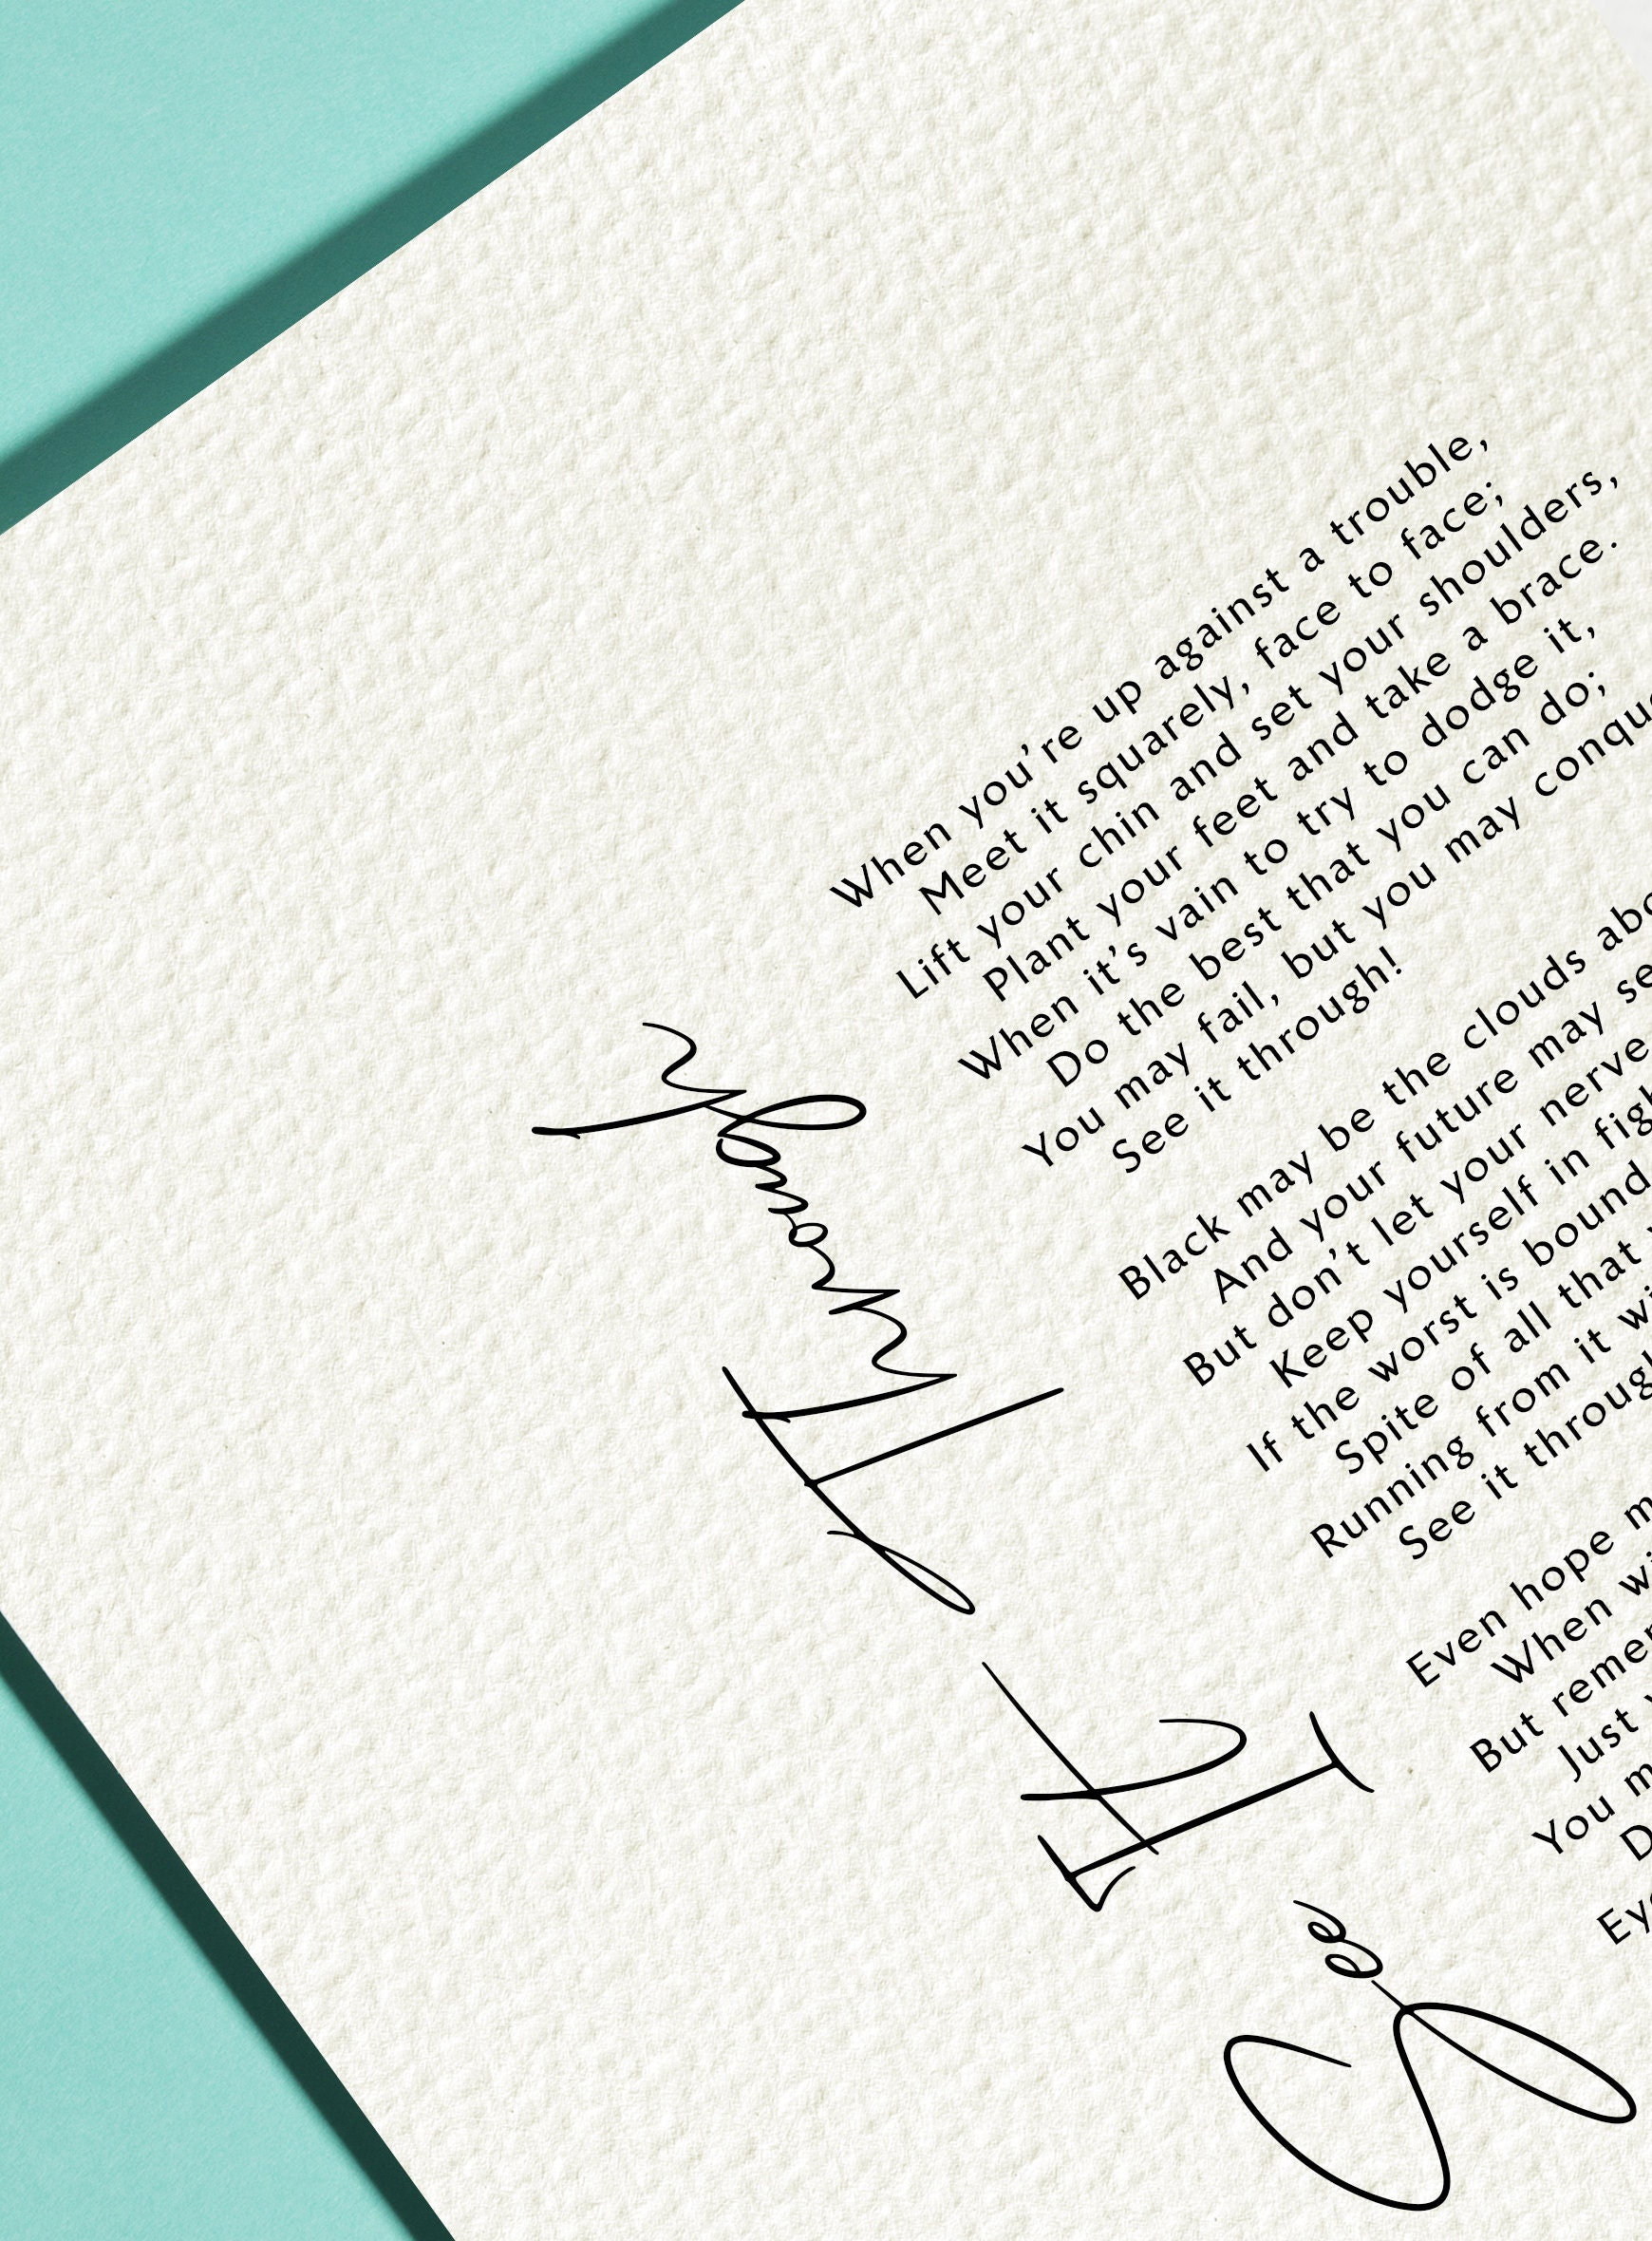 See It Through
When you're up against a trouble,
Meet it squarely, face to face;
Lift your chin and set your shoulders,
Plant your feet and take a brace.
When it's vain to try to dodge it,
Do the best that you can do;
You may fail, but you may conque
See it through!
Black may be the clouds abo
And your future may se
But don't let your nerve
Keep yourself in figh
If the worst is bound
Spite of all that
Running from it wi
See it throug
Even hope m
When wi
But remem
Just
You m
D
Eye